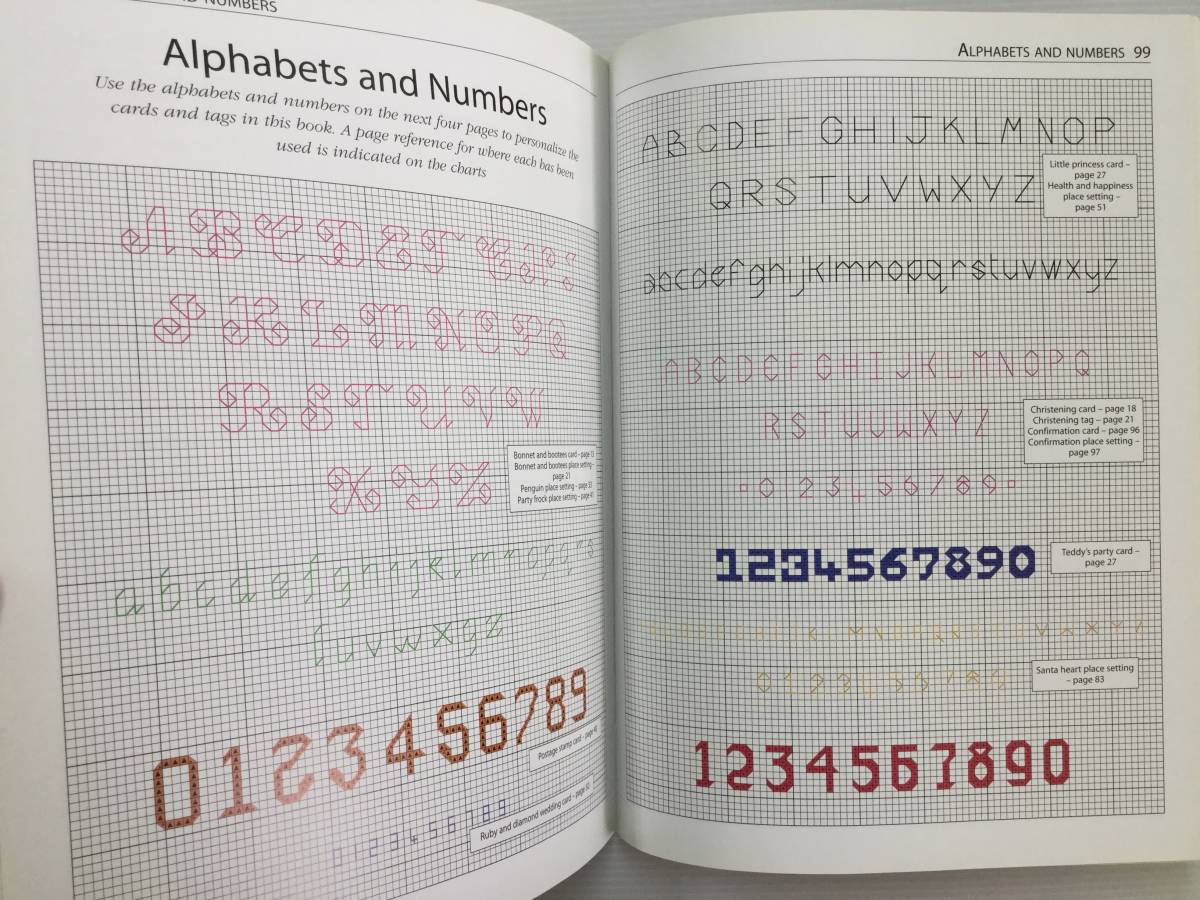 AND NUMBERS
Alphabets and Numbers
Use the alphabets and numbers on the next four pages to personalize the
cards and tags in this book. A page reference for where each has been
used is indicated on the charts
A B C D E F G H I
J K L M N O P Q
R S T U V W
X Y Z
Bonnet and bootees card – page 13
Bonnet and bootees place setting –
page 21
Penguin place setting – page 33
Party frock place setting – page 41
a b c d e f g h i j k l m n o p q r s
t u v w x y z
0123456789
Postage stamp card – page
0 1 2 3 4 5 6 7 8 9
Ruby and diamond wedding card – page
ALPHABETS AND NUMBERS 99
A B C D E F G H I J K L M N O P
Q R S T U V W X Y Z
Little princess card –
page 27
Health and happiness
place setting –
page 51
a b c d e f g h i j k l m n o p q r s t u v w x y z
A B C D E F G H I J K L M N O P Q
R S T U V W X Y Z
Christening card – page 18
Christening tag – page 21
Confirmation card – page 96
Confirmation place setting –
page 97
0 1 2 3 4 5 6 7 8 9
1234567890
Teddy's party card –
page 27
A B C D E F G H I J K L M N O P Q R S T U V W X Y Z
0 1 2 3 4 5 6 7 8 9
Santa heart place setting
– page 83
1234567890